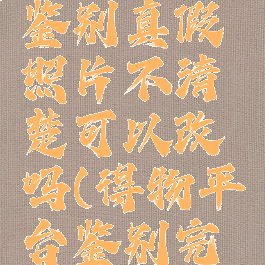 鉴别真假
照片不清
楚可以改
吗(得物平
台鉴别完